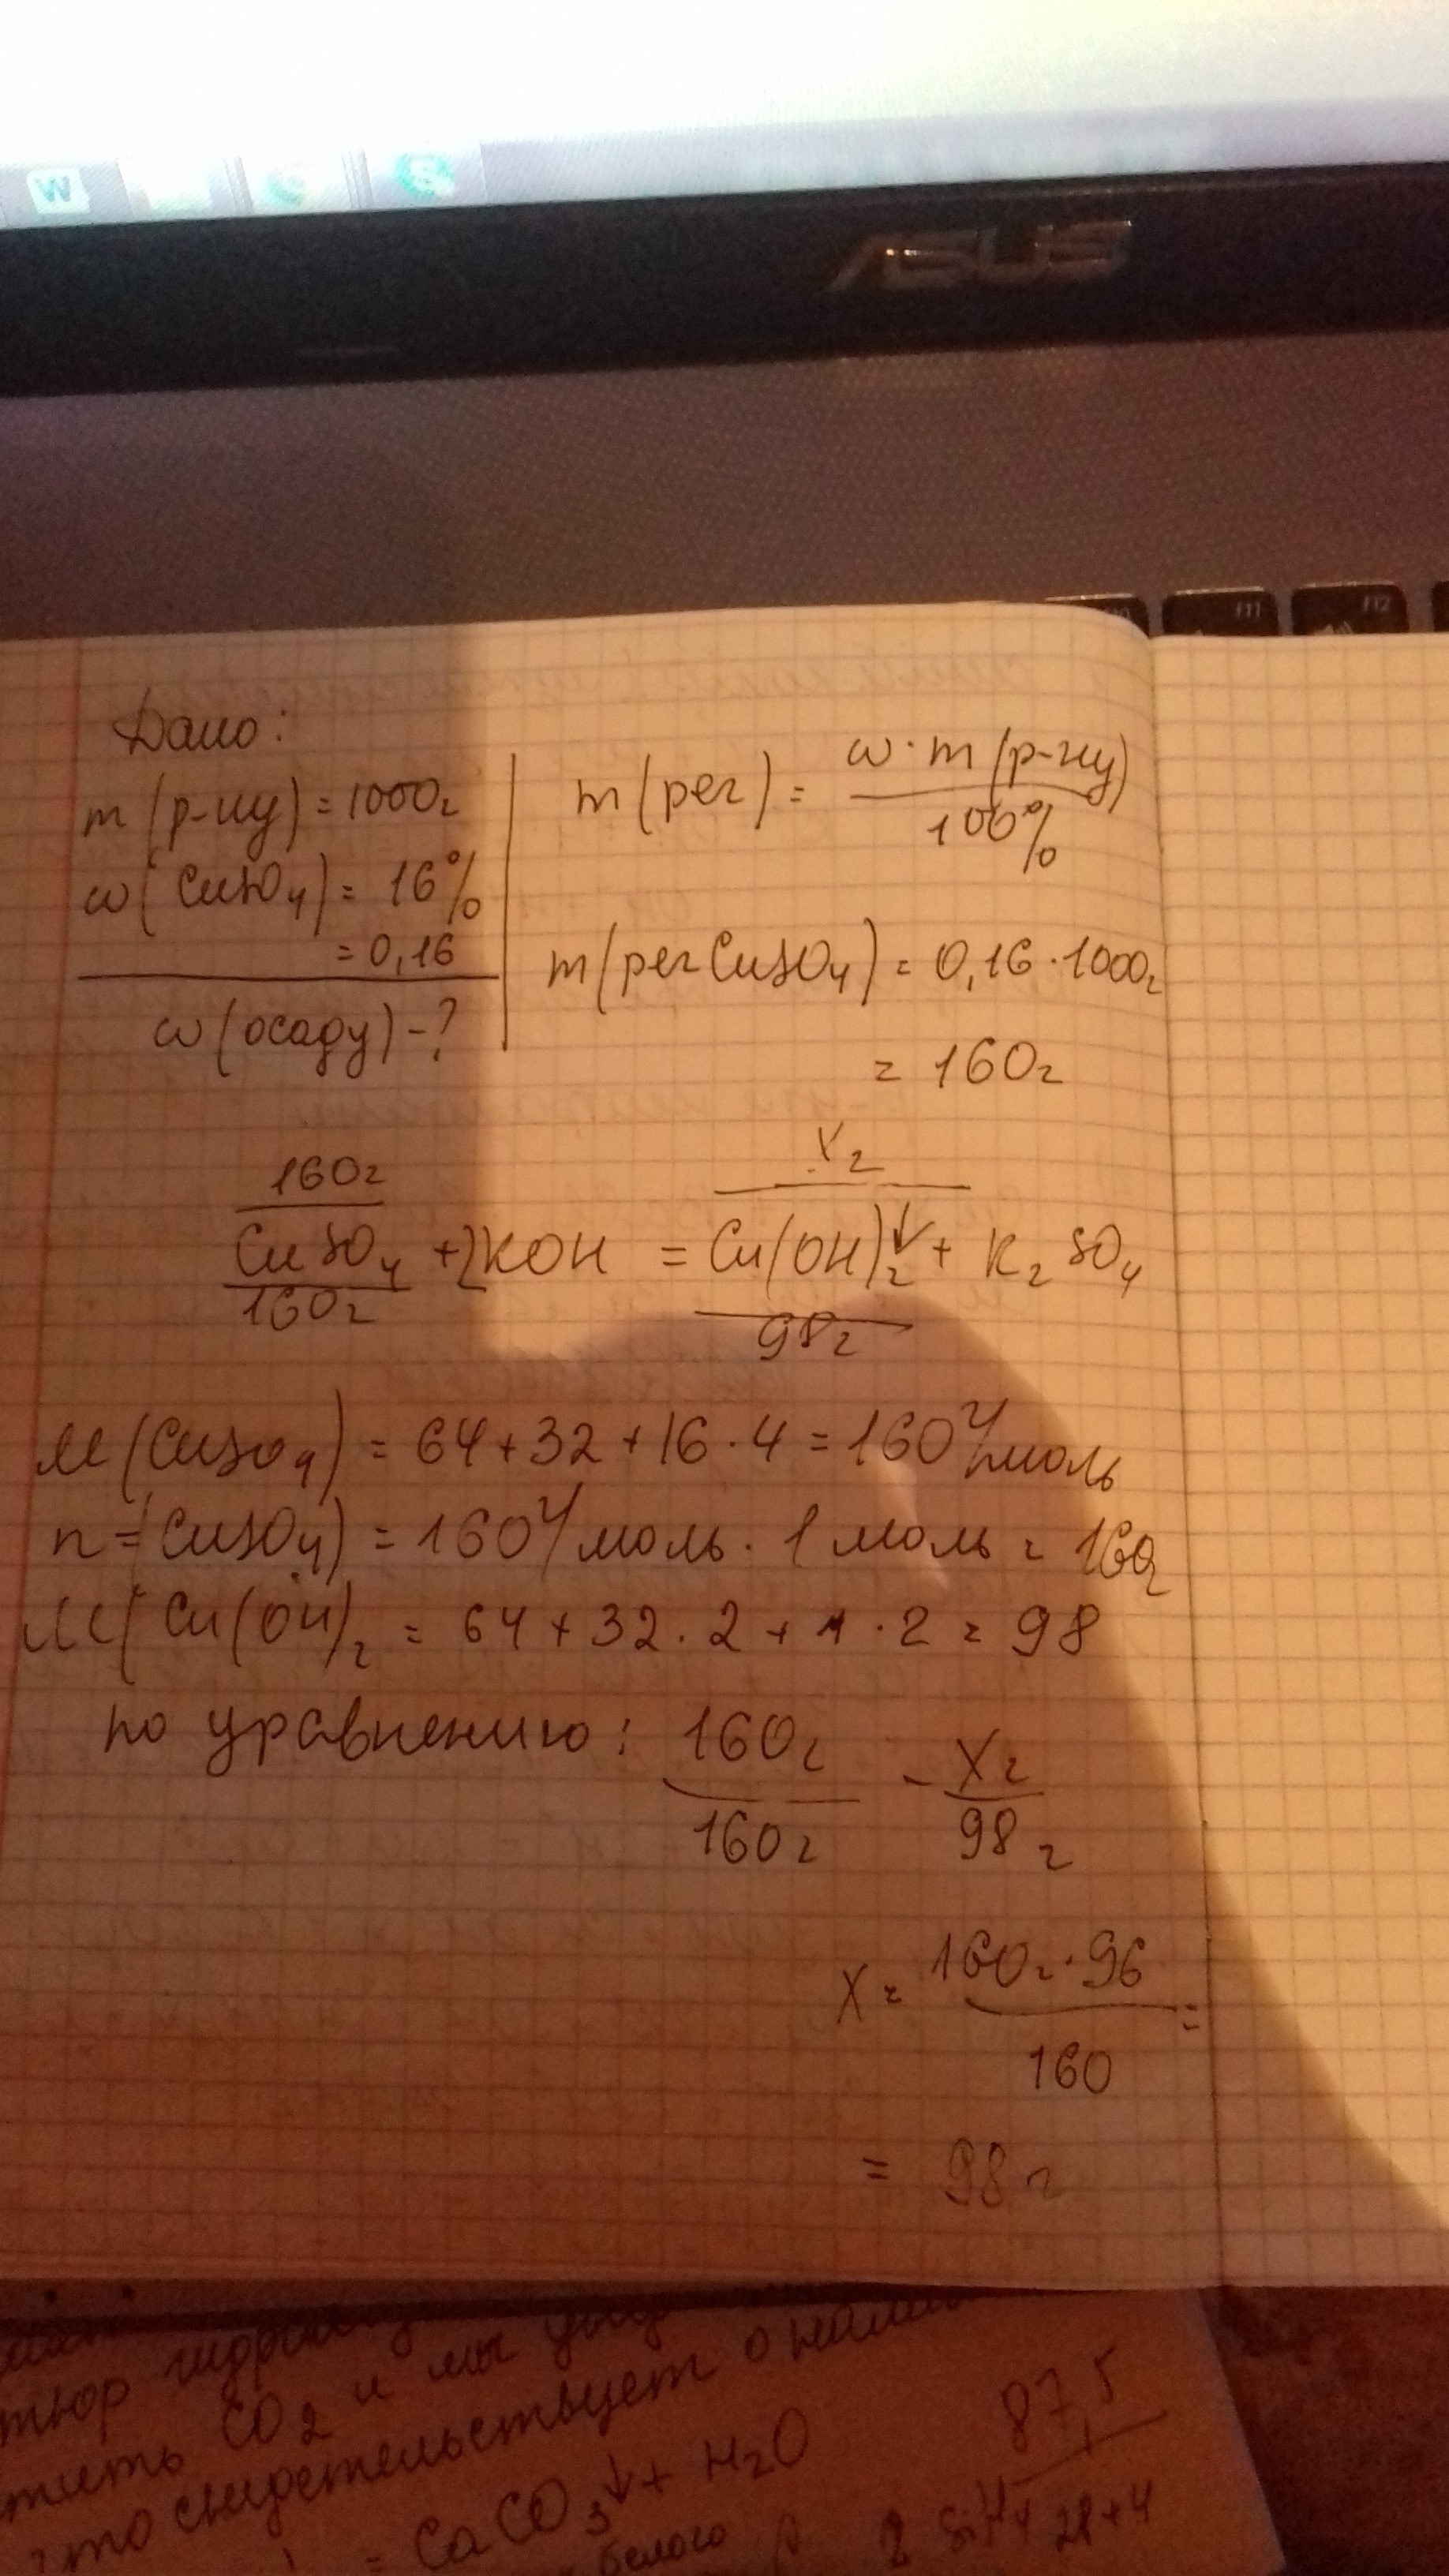 W
ASUS
f11 f12
Дано:
m(р-ну) = 1000г
ω(CuSO4) = 16%
= 0,16
ω(осаду) - ?
m(реч) = ω · m(р-ну) / 100%
m(реч CuSO4) = 0,16 · 1000г
= 160г
160г Xг
CuSO4 + 2KOH = Cu(OH)2↓ + K2SO4
160г 98г
M(CuSO4) = 64 + 32 + 16 · 4 = 160 г/моль
n = (CuSO4) = 160 г/моль · 1 моль = 160г
M(Cu(OH)2 = 64 + 32 · 2 + 1 · 2 = 98
по уравнению: 160г / 160г - Xг / 98г
X = 160г · 96 / 160 =
= 98г
CO2 и мы
свидетельствует о
= CaCO3↓ + H2O
белого
87,5
2 SiH4 28+4